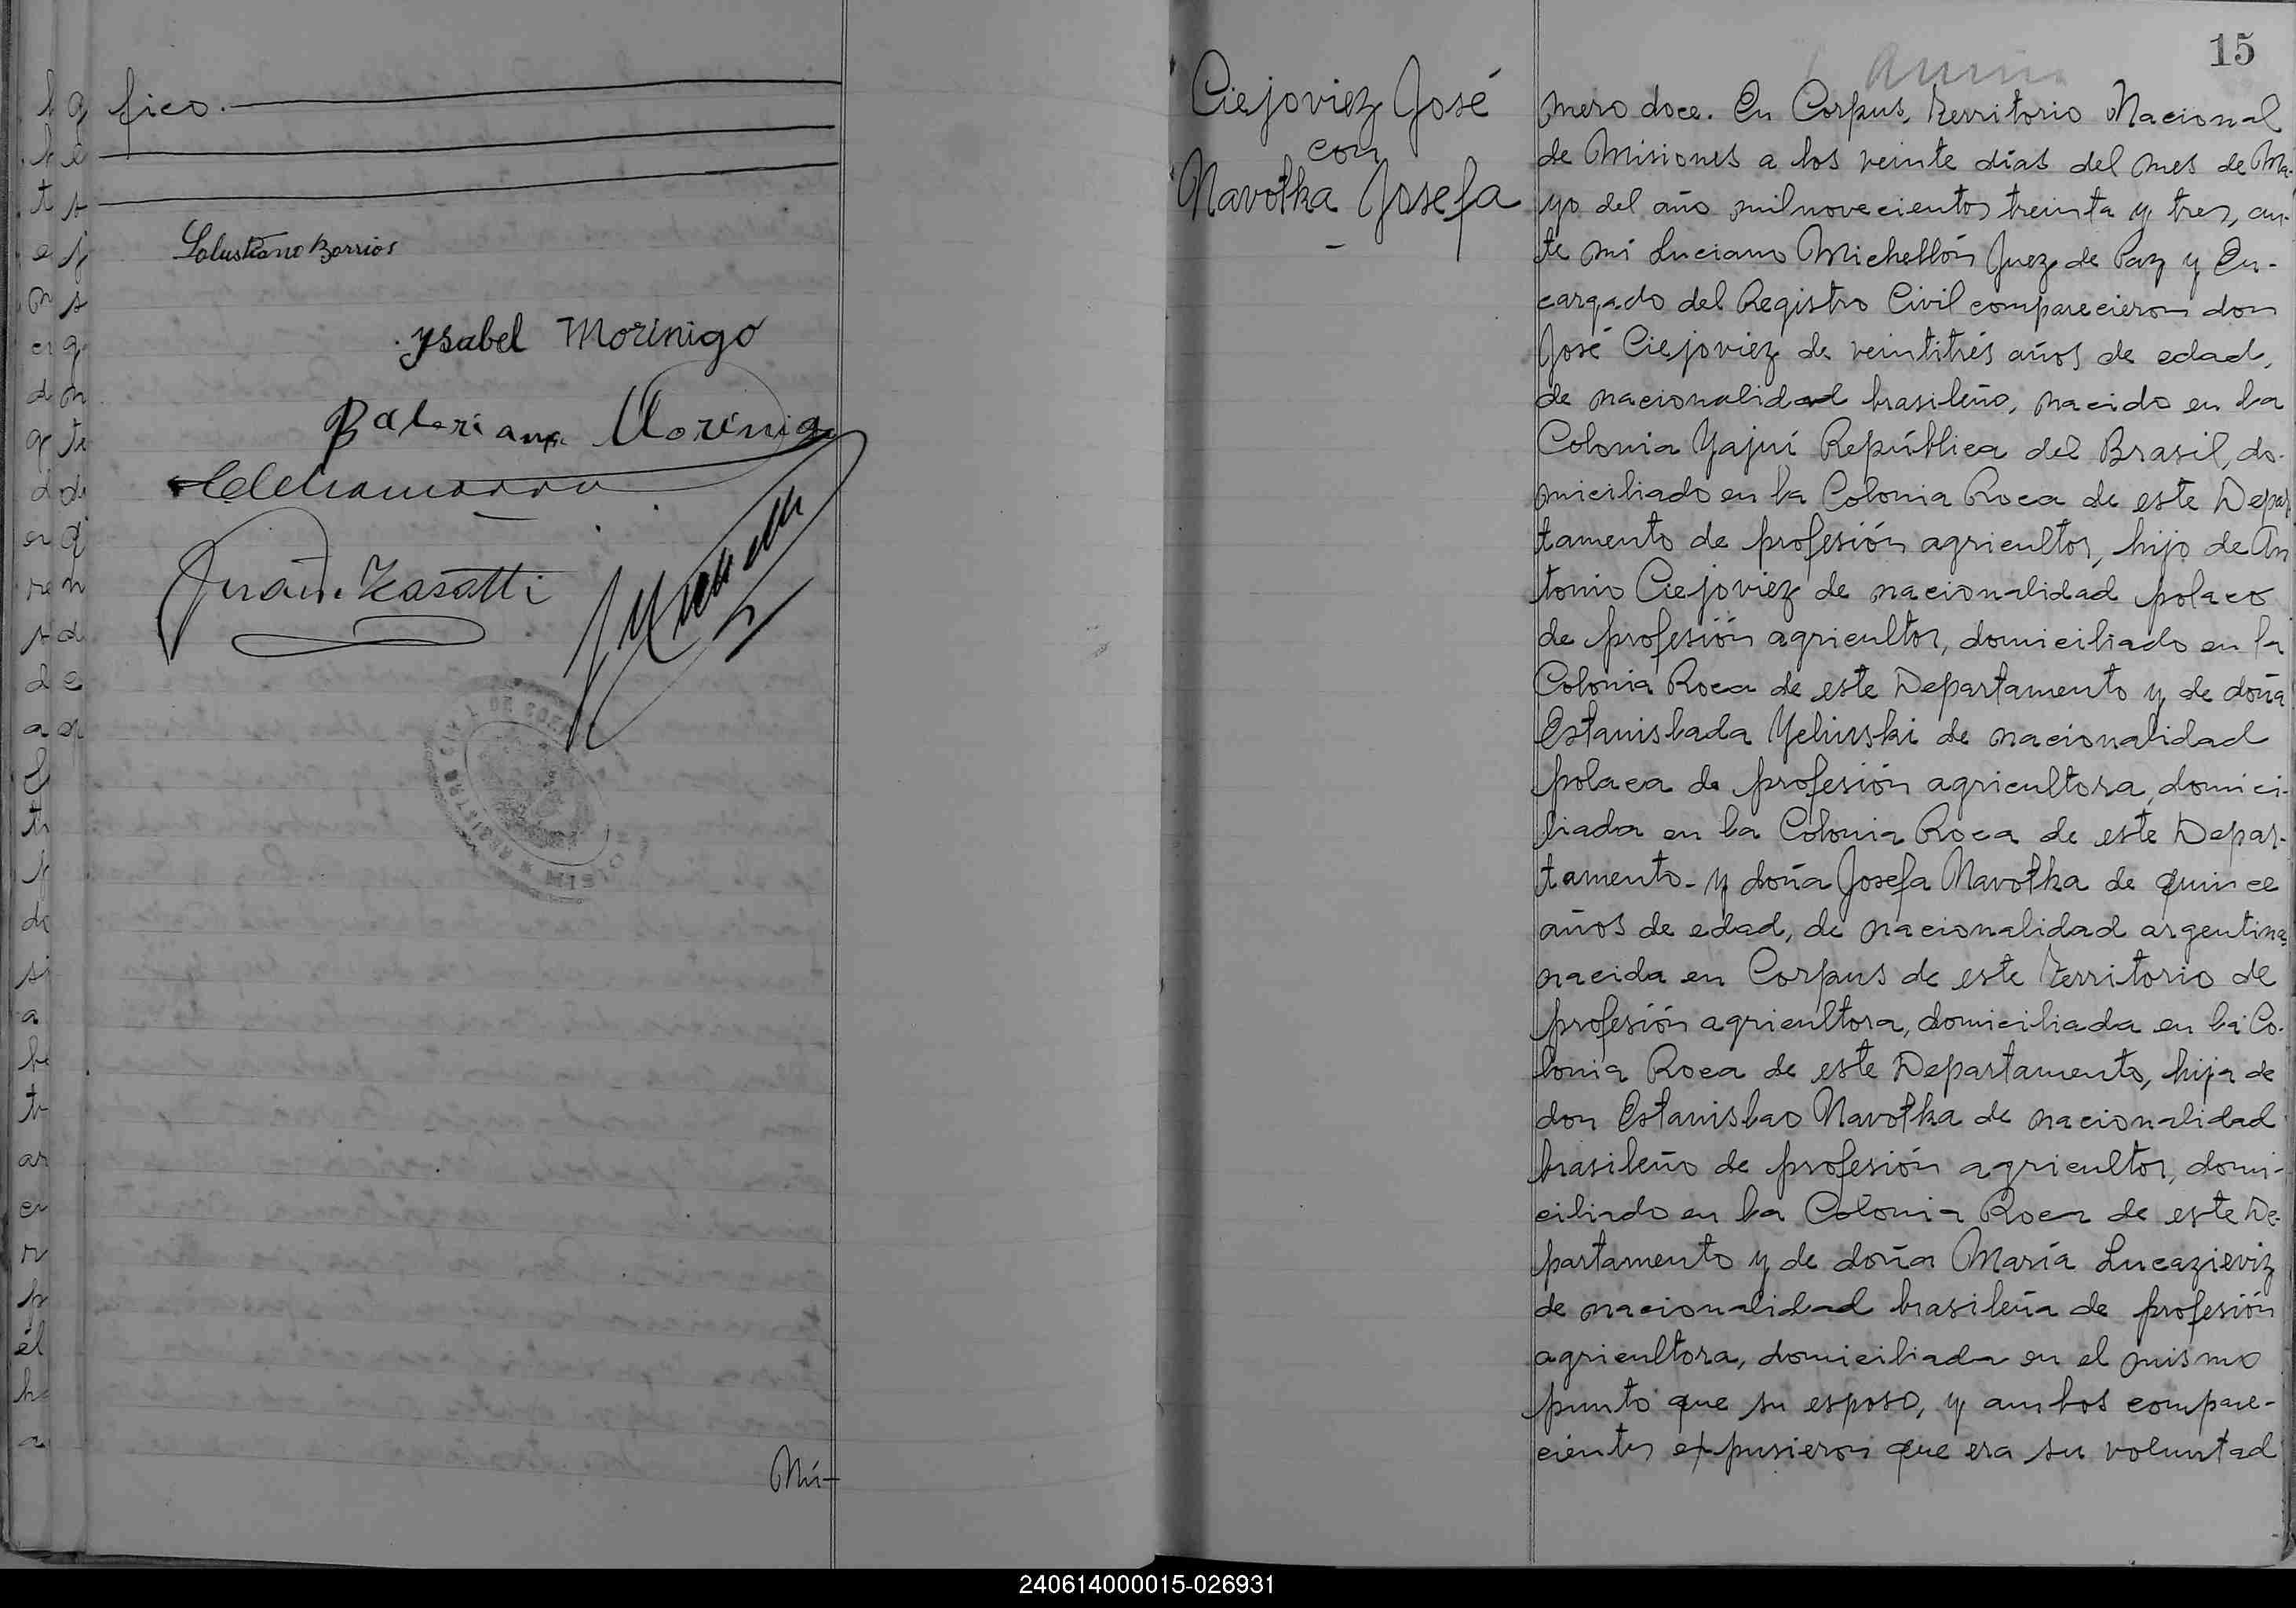 fico.
Salustiano Barrios
Ysabel Morinigo
Baleriana Morinigo
Juan Zasatti
REGISTRO CIVIL DE
Nú-
15
Ciejoviez José
con
Navotka Josefa
mero doce. En Corpus, Territorio Nacional
de Misiones a los veinte días del mes de Ma-
yo del año milnovecientos treinta y tres, an-
te mí Luciano Michellón Juez de Paz y En-
cargado del Registro Civil comparecieron don
José Ciejoviez de veintitrés años de edad,
de nacionalidad brasileño, nacido en la
Colonia Yajuí República del Brasil, do-
miciliado en la Colonia Roca de este Depar
tamento de profesión agricultor, hijo de An
tonio Ciejoviez de nacionalidad polaco
de profesión agricultor, domiciliado en la
Colonia Roca de este Departamento y de doña
Estanislada Yelinski de nacionalidad
polaca de profesión agricultora, domici-
liada en la Colonia Roca de este Depar-
tamento- y doña Josefa Navotka de quince
años de edad, de nacionalidad argentina,
nacida en Corpus de este Territorio de
profesión agricultora, domiciliada en la Co-
lonia Roca de este Departamento, hija de
don Estanislao Navotka de nacionalidad
brasileño de profesión agricultor, domi-
ciliado en la Colonia Roca de este De-
partamento y de doña María Lucazieviz
de nacionalidad brasileña de profesión
agricultora, domiciliada en el mismo
punto que su esposo, y ambos compare-
cientes expusieron que era su voluntad
240614000015-026931